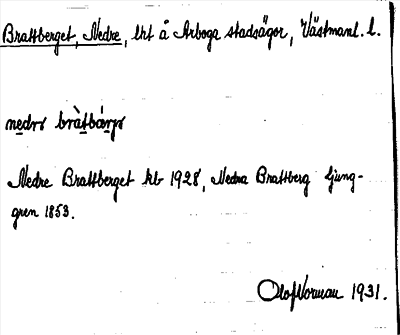 Brattberget, Nedre, lht å Arboga stadsägor, Västmanl. l.
nedrɘ bràtbárjɘ
Nedre Brattberget kb 1928, Nedra Brattberg Ljung-
gren 1853.
Olof Norman 1931.